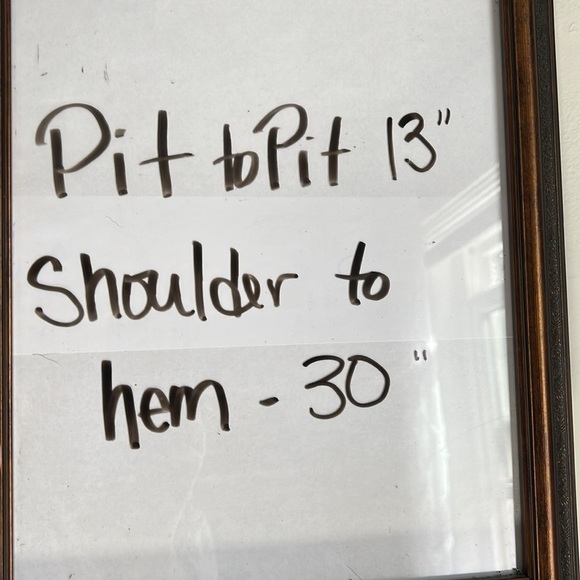 Pit to Pit 13"
Shoulder to
hem - 30"